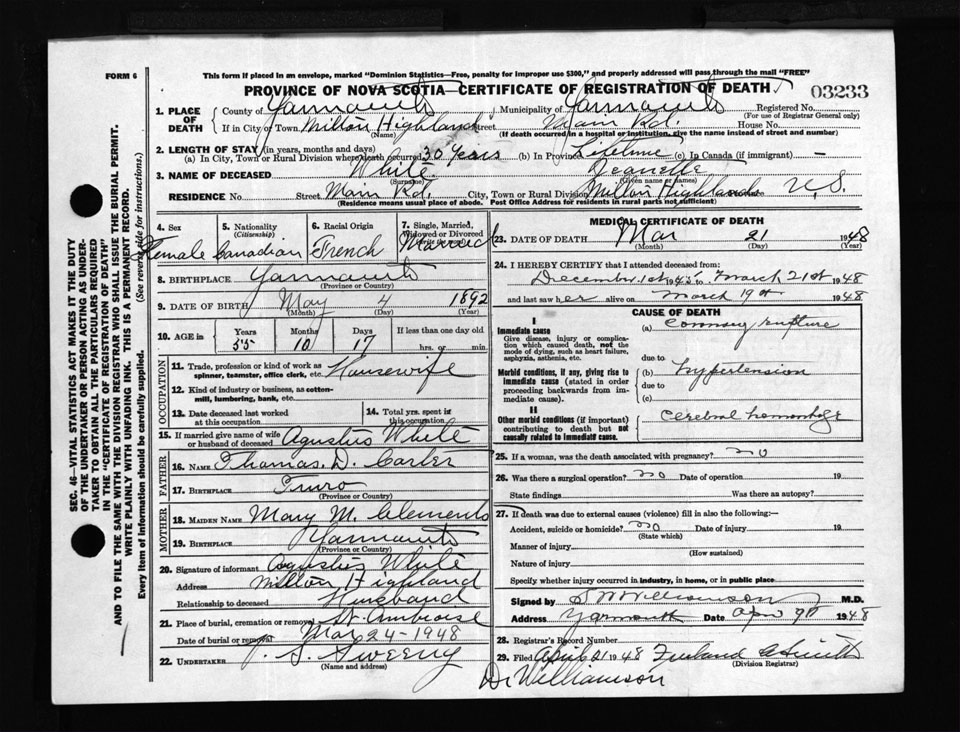 FORM 6
This form if placed in an envelope, marked "Dominion Statistics—Free, penalty for improper use $300," and properly addressed will pass through the mail "FREE"
PROVINCE OF NOVA SCOTIA—CERTIFICATE OF REGISTRATION OF DEATH
03233
1. PLACE OF DEATH
County of Yarmouth Municipality of Yarmouth Registered No.
(For use of Registrar General only)
If in City or Town Milton Highland Street Main Rd. House No.
(Name) (If death occurred in a hospital or institution, give the name instead of street and number)
2. LENGTH OF STAY (in years, months and days)
(a) In City, Town or Rural Division where death occurred 30 Years (b) In Province Lifetime (c) In Canada (if immigrant) —
3. NAME OF DECEASED White Jeanette
(Surname) (Given name or names)
RESIDENCE No. Street Main Rd. City, Town or Rural Division Milton Highlands
(Residence means usual place of abode. Post Office Address for residents in rural parts not sufficient)
4. Sex Female
5. Nationality (Citizenship) Canadian
6. Racial Origin French
7. Single, Married, Widowed or Divorced Married
8. BIRTHPLACE Yarmouth
(Province or Country)
9. DATE OF BIRTH May 4 1892
(Month) (Day) (Year)
10. AGE in Years Months Days If less than one day old
55 10 17 hrs. or min.
OCCUPATION
11. Trade, profession or kind of work as spinner, teamster, office clerk, etc. Housewife
12. Kind of industry or business, as cotton-mill, lumbering, bank, etc.
13. Date deceased last worked at this occupation
14. Total yrs. spent in this occupation
15. If married give name of wife or husband of deceased Agustus White
FATHER
16. NAME Thomas. D. Carter
17. BIRTHPLACE Truro
(Province or Country)
MOTHER
18. MAIDEN NAME Mary M. Clements
19. BIRTHPLACE Yarmouth
(Province or Country)
20. Signature of informant Agustus White
Address Milton Highland
Relationship to deceased Husband
21. Place of burial, cremation or removal St. Ambroise
Date of burial or removal Mar 24 - 1948
22. UNDERTAKER J. S. Sweeny
(Name and address)
MEDICAL CERTIFICATE OF DEATH
23. DATE OF DEATH Mar 21 1948
(Month) (Day) (Year)
24. I HEREBY CERTIFY that I attended deceased from:
December 1st 1945 to March 21st 1948
and last saw her alive on March 19th 1948
CAUSE OF DEATH
I
Immediate cause (a) Coronary rupture
Give disease, injury or complication which caused death, not the mode of dying, such as heart failure, asphyxia, asthenia, etc.
due to
Morbid conditions, if any, giving rise to immediate cause (stated in order proceeding backwards from immediate cause).
(b) Hypertension
due to
(c)
II
Other morbid conditions (if important) contributing to death but not causally related to immediate cause. Cerebral hemorrhage
25. If a woman, was the death associated with pregnancy? no
26. Was there a surgical operation? no Date of operation 19
State findings Was there an autopsy?
27. If death was due to external causes (violence) fill in also the following:—
Accident, suicide or homicide? no Date of injury 19
(State which)
Manner of injury
(How sustained)
Nature of injury
Specify whether injury occurred in industry, in home, or in public place
Signed by S W Williamson M.D.
Address Yarmouth Date Apr 9th 1948
28. Registrar's Record Number
29. Filed April 21 1948
(Division Registrar)
Dr Williamson
SEC. 46—VITAL STATISTICS ACT MAKES IT THE DUTY
OF THE UNDERTAKER OR PERSON ACTING AS UNDERTAKER TO OBTAIN ALL THE PARTICULARS REQUIRED
IN THE "CERTIFICATE OF REGISTRATION OF DEATH"
AND TO FILE THE SAME WITH THE DIVISION REGISTRAR WHO SHALL ISSUE THE BURIAL PERMIT.
WRITE PLAINLY WITH UNFADING INK. THIS IS A PERMANENT RECORD.
Every item of information should be carefully supplied. (See reverse side for instructions.)